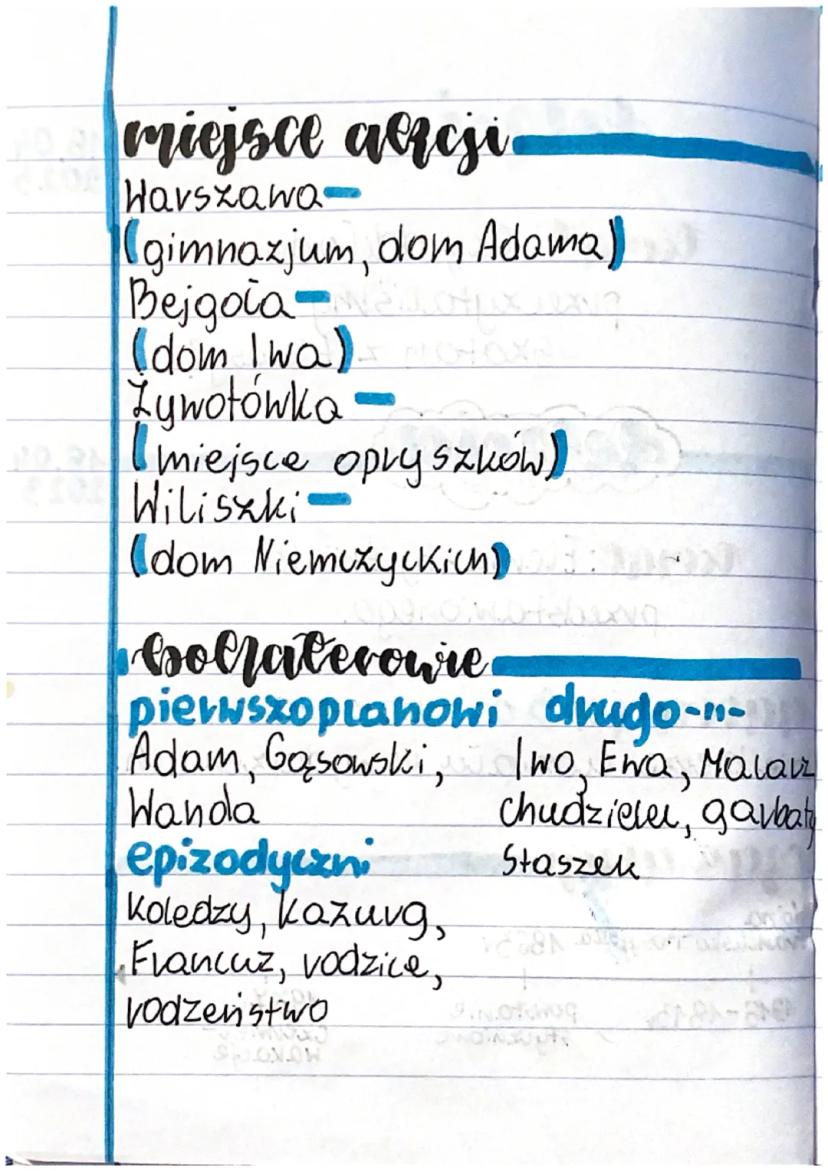 miejsce akcji
Warszawa-
(gimnazjum, dom Adama)
Bejgoła-
(dom Iwa)
Żywotówka -
(miejsce opryszków)
Wiliszki-
(dom Niemczyckich)
bohaterowie
pierwszoplanowi drugo-11-
Adam, Gąsowski, Iwo, Ewa, Malarz
Wanda chudzielec, garbaty
epizodyczni Staszek
koledzy, kazurg,
Francuz, rodzice,
rodzeństwo